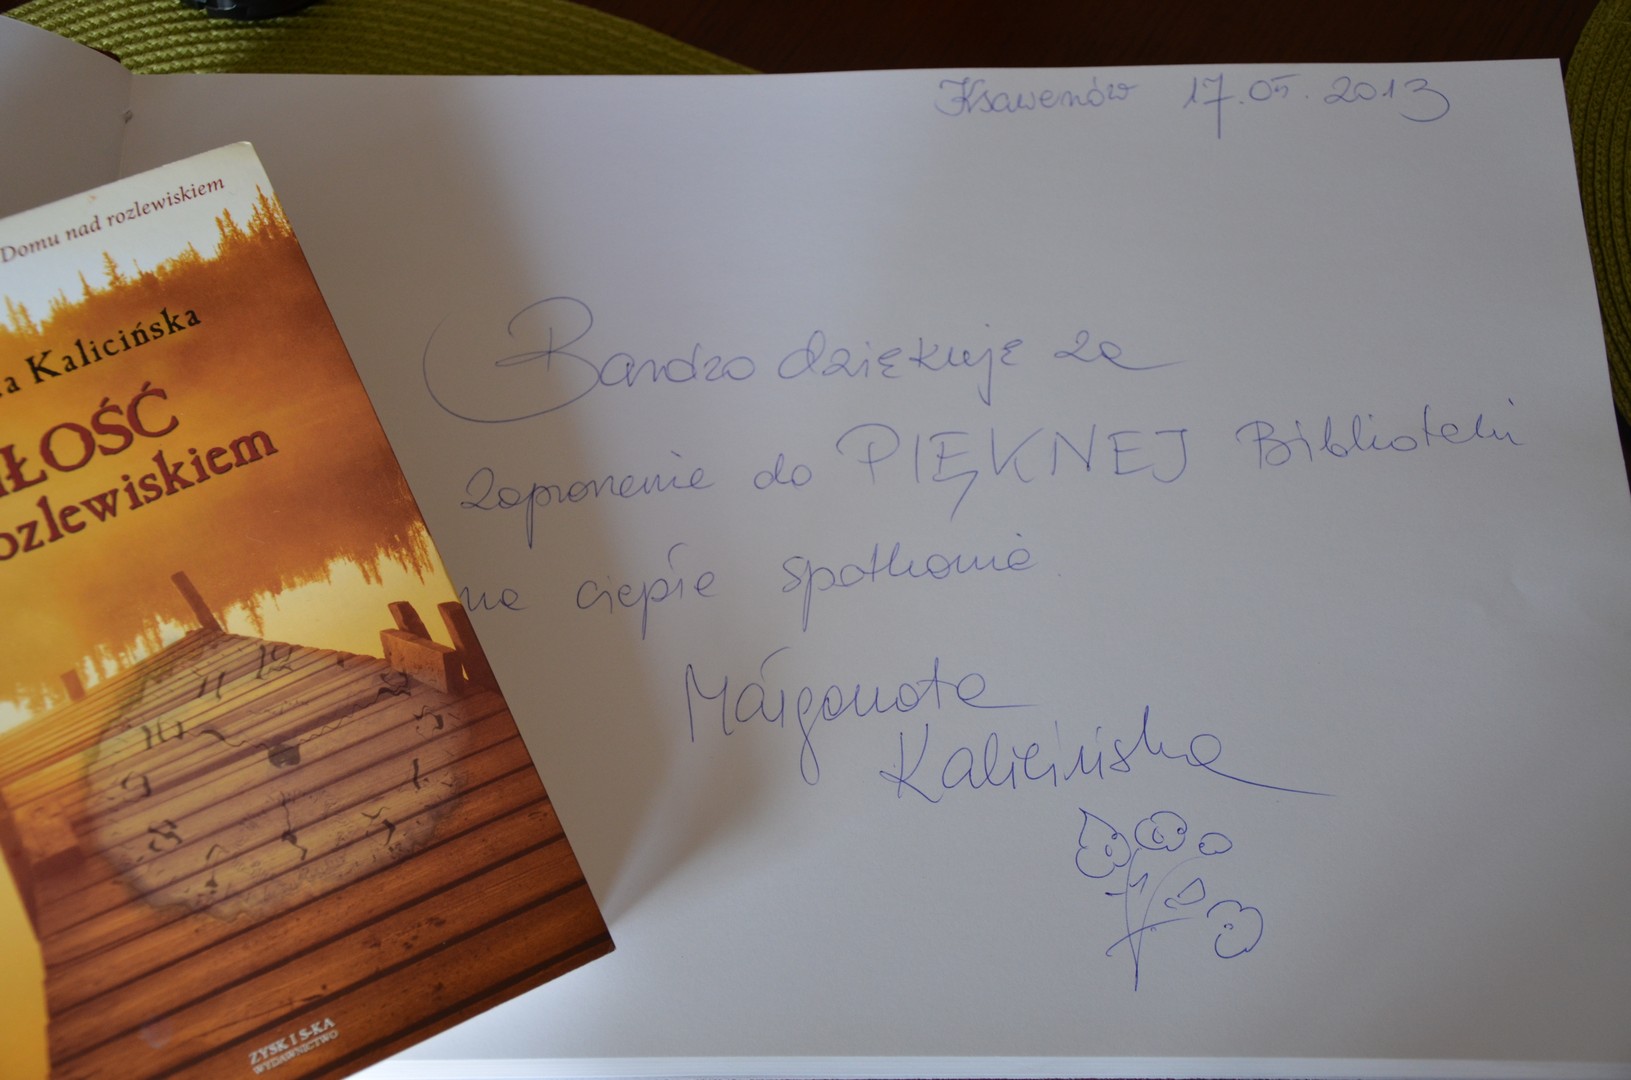 Domu nad rozlewiskiem
a Kalicińska
ŁOŚĆ
ozlewiskiem
ZYSK I S-KA
WYDAWNICTWO
Ksawerów 17.05.2013
Bardzo dziękuję za
zaproszenie do PIĘKNEJ Biblioteki
na ciepłe spotkanie.
Małgorzata
Kalicińska
12
11
10
9
8